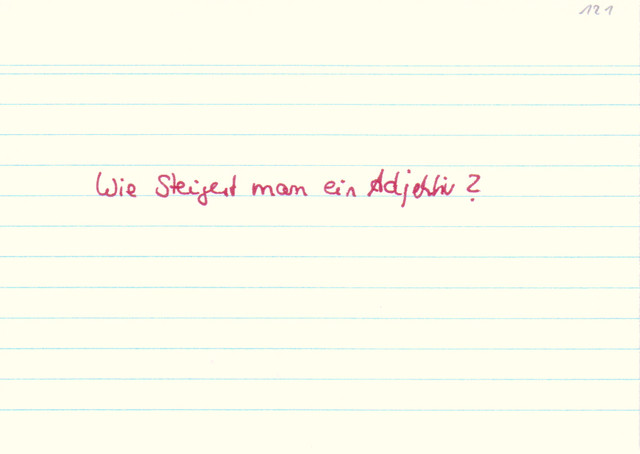 121
Wie Steigert man ein Adjektiv?